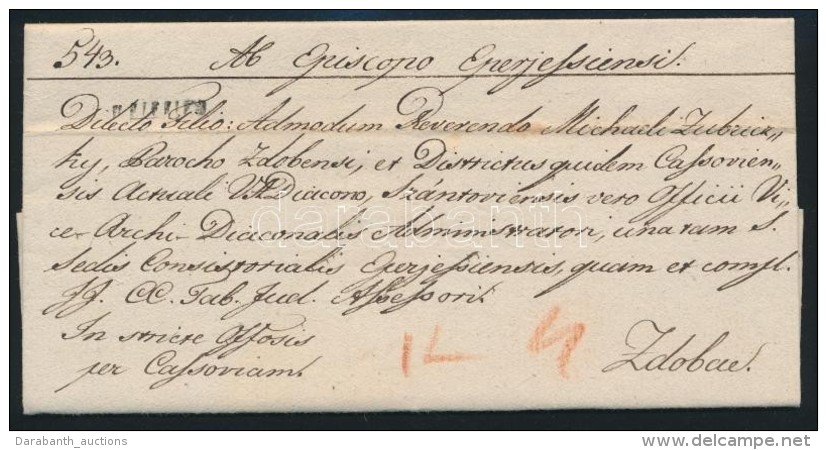 543. Ab Episcopo Eperjessiensi.
Dilecto Filio: Admodum Reverendo Michaeli Zubricz„
ky, Parocho Zdobensi, et Districtus quidem Cassovien„
sis Actuali V. A. Diacono, Szántoviensis vero Officii Vi„
ce-Archi-Diaconalis Administratori, una tam S.
Sedis Consistorialis Eperjessiensis, quam et compl.
ff. CC. Tab. Jud. Assessori.
In stricte Offosis
per Cassoviam.
Zdobae.
darabanth
Darabanth_auctions
www.delcampe.net